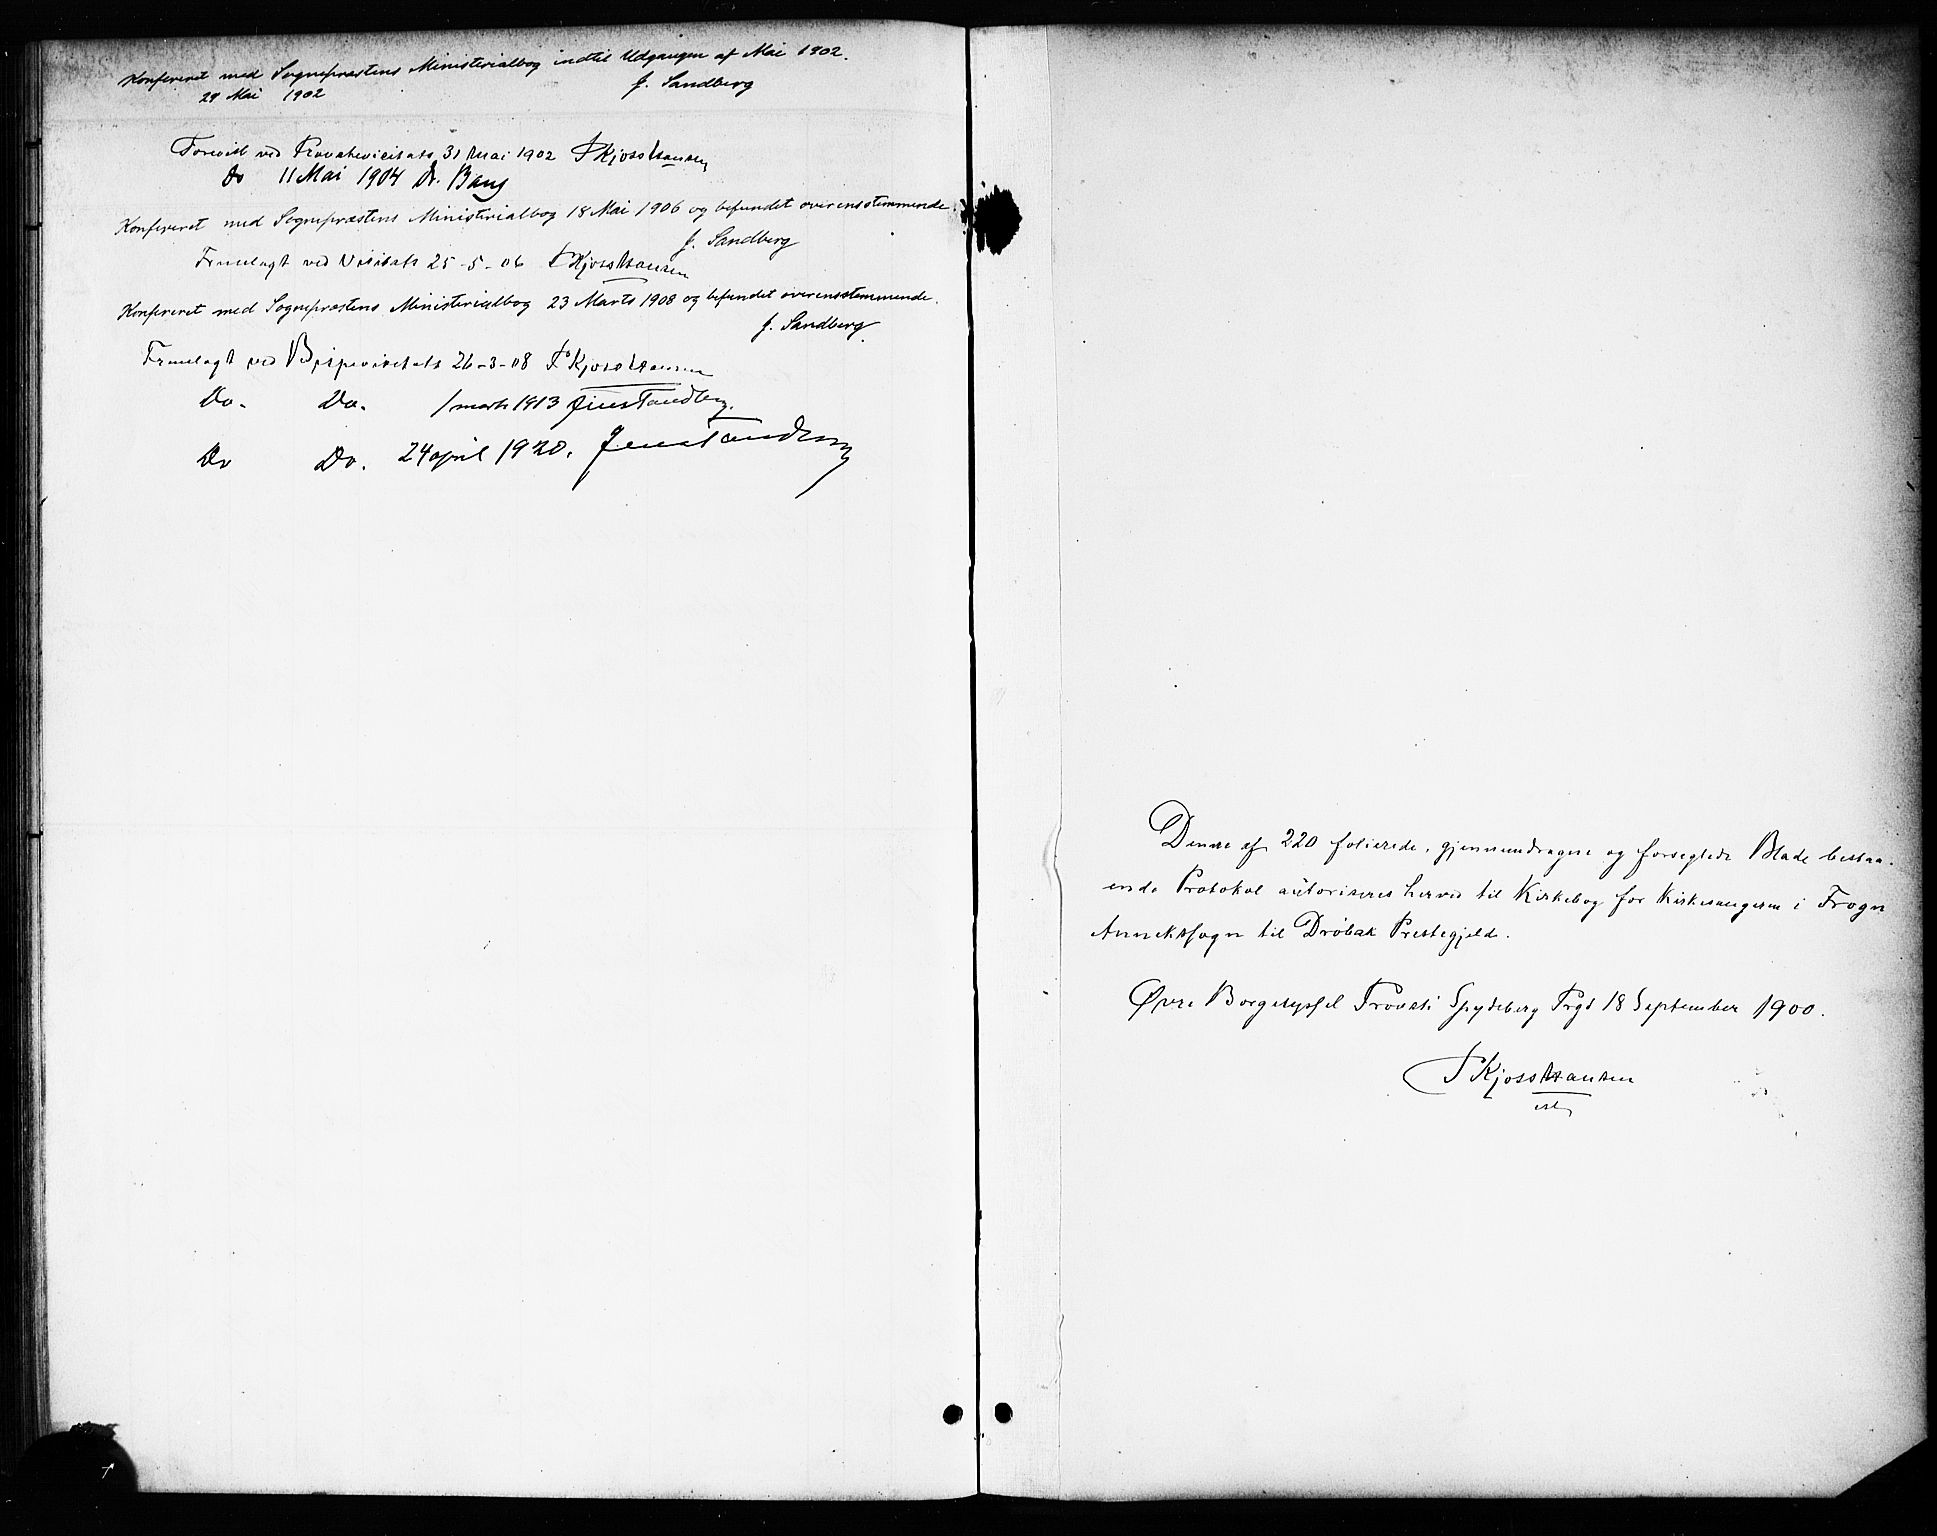 Konfereret med Sognepræstens Ministerialbog indtil Udgangen af Mai 1902.
29 Mai 1902 J. Sandberg
Forevist ved Provstevisitats 31 Mai 1902 P Kjoss Hansen
Do 11 Mai 1904 Dr. Bang
Konfereret med Sognepræstens Ministerialbog 18 Mai 1906 og befundet overensstemmende.
J. Sandberg
Fremlagt ved Visitats 25-5-06 P Kjoss Hansen
Konfereret med Sognepræstens Ministerialbog 23 Marts 1908 og befundet overensstemmende.
J. Sandberg
Fremlagt ved Bispevisitats 26-3-08 P Kjoss Hansen
Do. Do. 1 marts 1913 Jens Tandberg.
Do Do. 24 april 1920. Jens Tandberg
Denne af 220 folierede, gjennemdragne og forseglede Blade bestaa-
ende Protokol autoriseres herved til Kirkebog for Kirkesangeren i Frogn
Annekssogn til Drøbak Prestegjeld.
Øvre Borgesyssel Provsti Spydeberg Prgd 18 September 1900.
P Kjoss Hansen